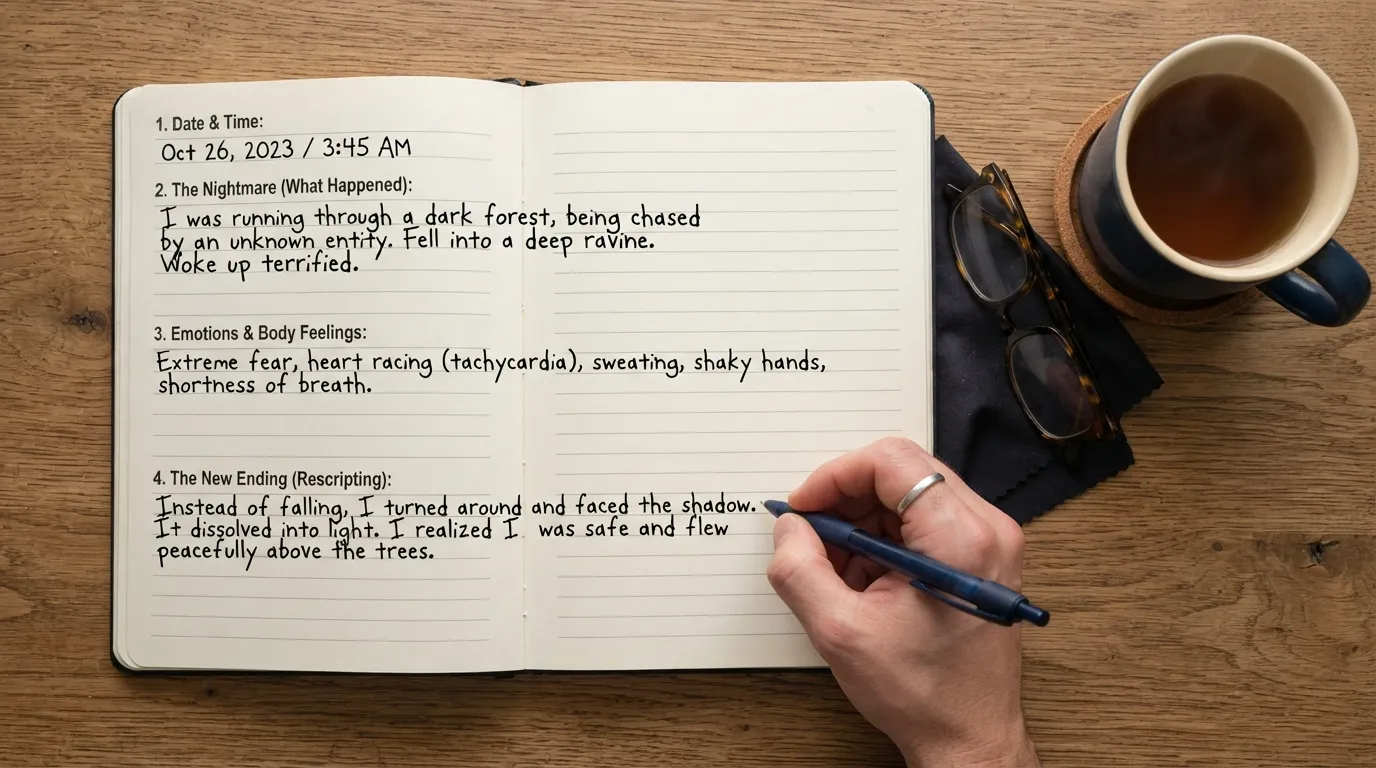 1. Date & Time:
Oct 26, 2023 / 3:45 AM
2. The Nightmare (What Happened):
I was running through a dark forest, being chased
by an unknown entity. Fell into a deep ravine.
Woke up terrified.
3. Emotions & Body Feelings:
Extreme fear, heart racing (tachycardia), sweating, shaky hands,
shortness of breath.
4. The New Ending (Rescripting):
Instead of falling, I turned around and faced the shadow.
It dissolved into light. I realized I was safe and flew
peacefully above the trees.